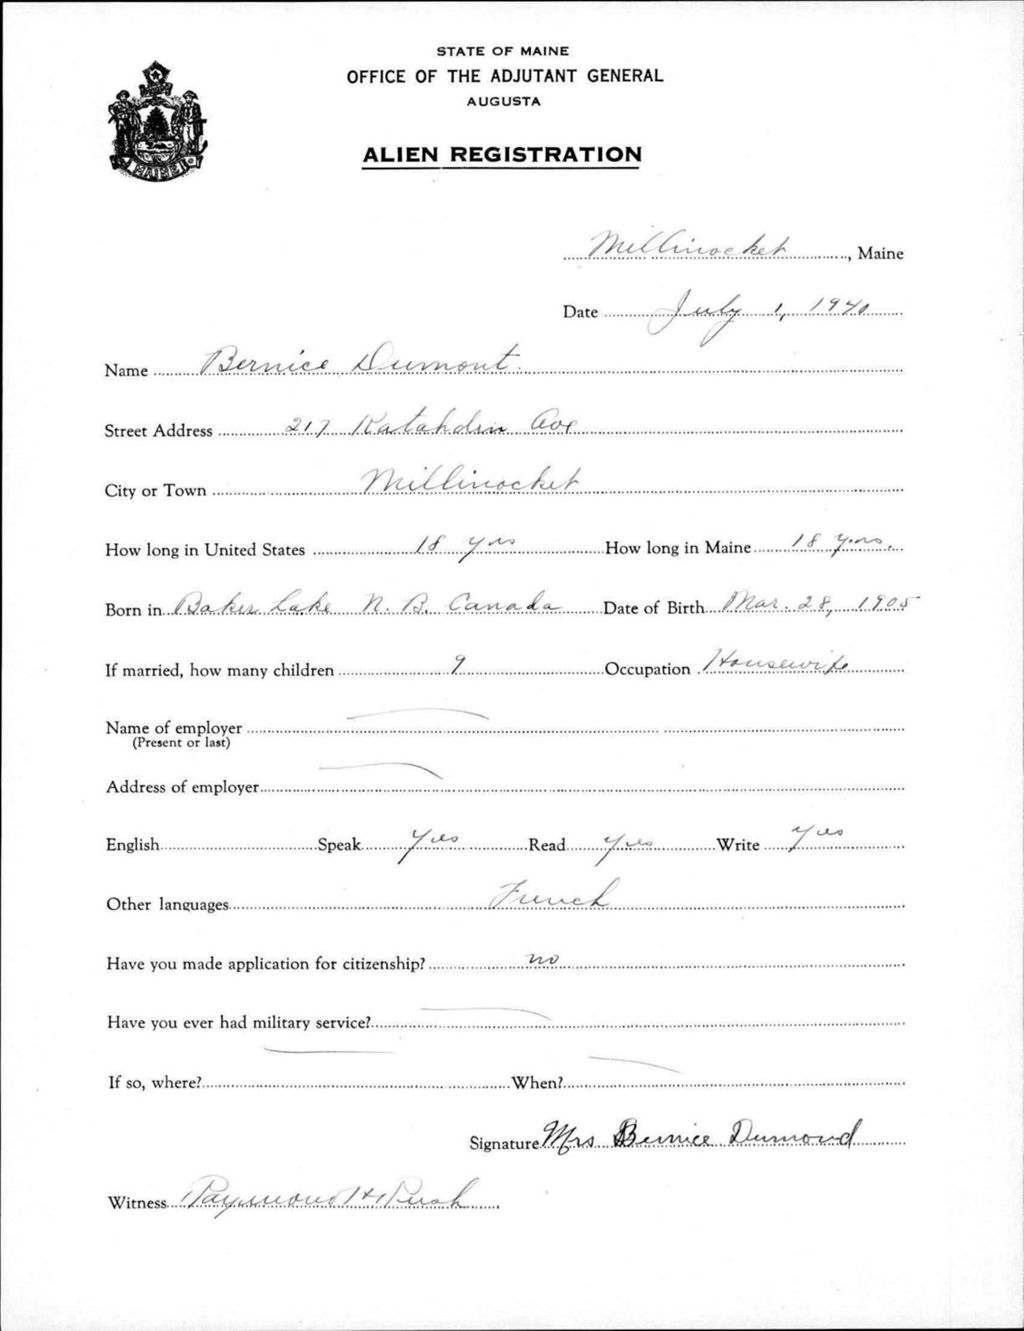 STATE OF MAINE
OFFICE OF THE ADJUTANT GENERAL
AUGUSTA
ALIEN REGISTRATION
Millinocket, Maine
Date July 1, 1940
Name Bernice Dumont
Street Address 217 Katahdin Ave
City or Town Millinocket
How long in United States 18 yrs How long in Maine 18 yrs.
Born in Baker Lake N. B. Canada Date of Birth Mar. 28, 1905
If married, how many children 9 Occupation Housewife
Name of employer
(Present or last)
Address of employer
English Speak Yes Read Yes Write Yes
Other languages French
Have you made application for citizenship? no
Have you ever had military service?
If so, where? When?
Signature Mrs Bernice Dumond
Witness Raymond H Rush